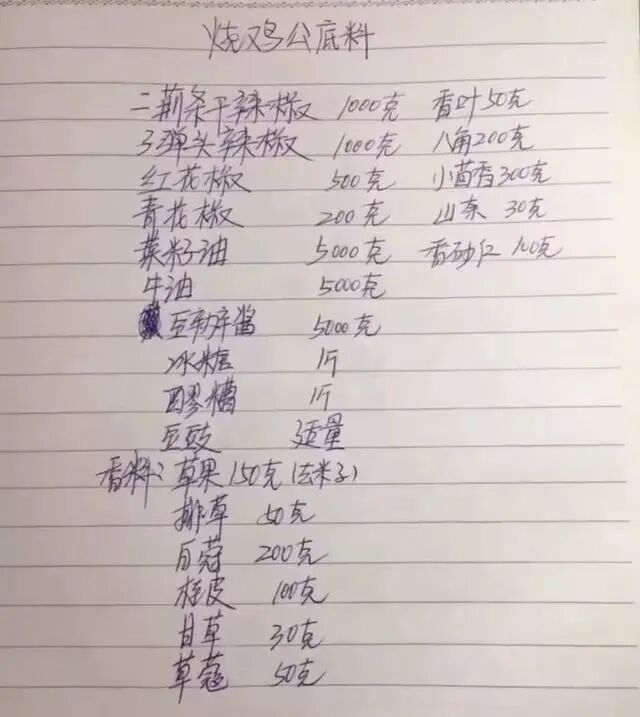 烧鸡公底料
二荆条干辣椒 1000克 香叶50克
子弹头辣椒 1000克 八角200克
红花椒 500克 小茴香300克
青花椒 200克 山奈 30克
菜籽油 5000克 香砂仁 100克
牛油 5000克
豆瓣酱 5000克
冰糖 1斤
醪糟 1斤
豆豉 适量
香料:草果150克(去籽)
排草 50克
白蔻 200克
桂皮 100克
甘草 30克
草蔻 50克